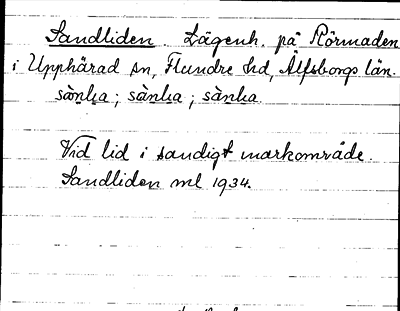 Sandliden. Lägenh. på Rörmaden
i Upphärad sn, Flundre hd, Älfsborgs län.
sànḷia; sànḷia; sànḷia.
Vid lid i sandigt markområde.
Sandliden ml 1934.